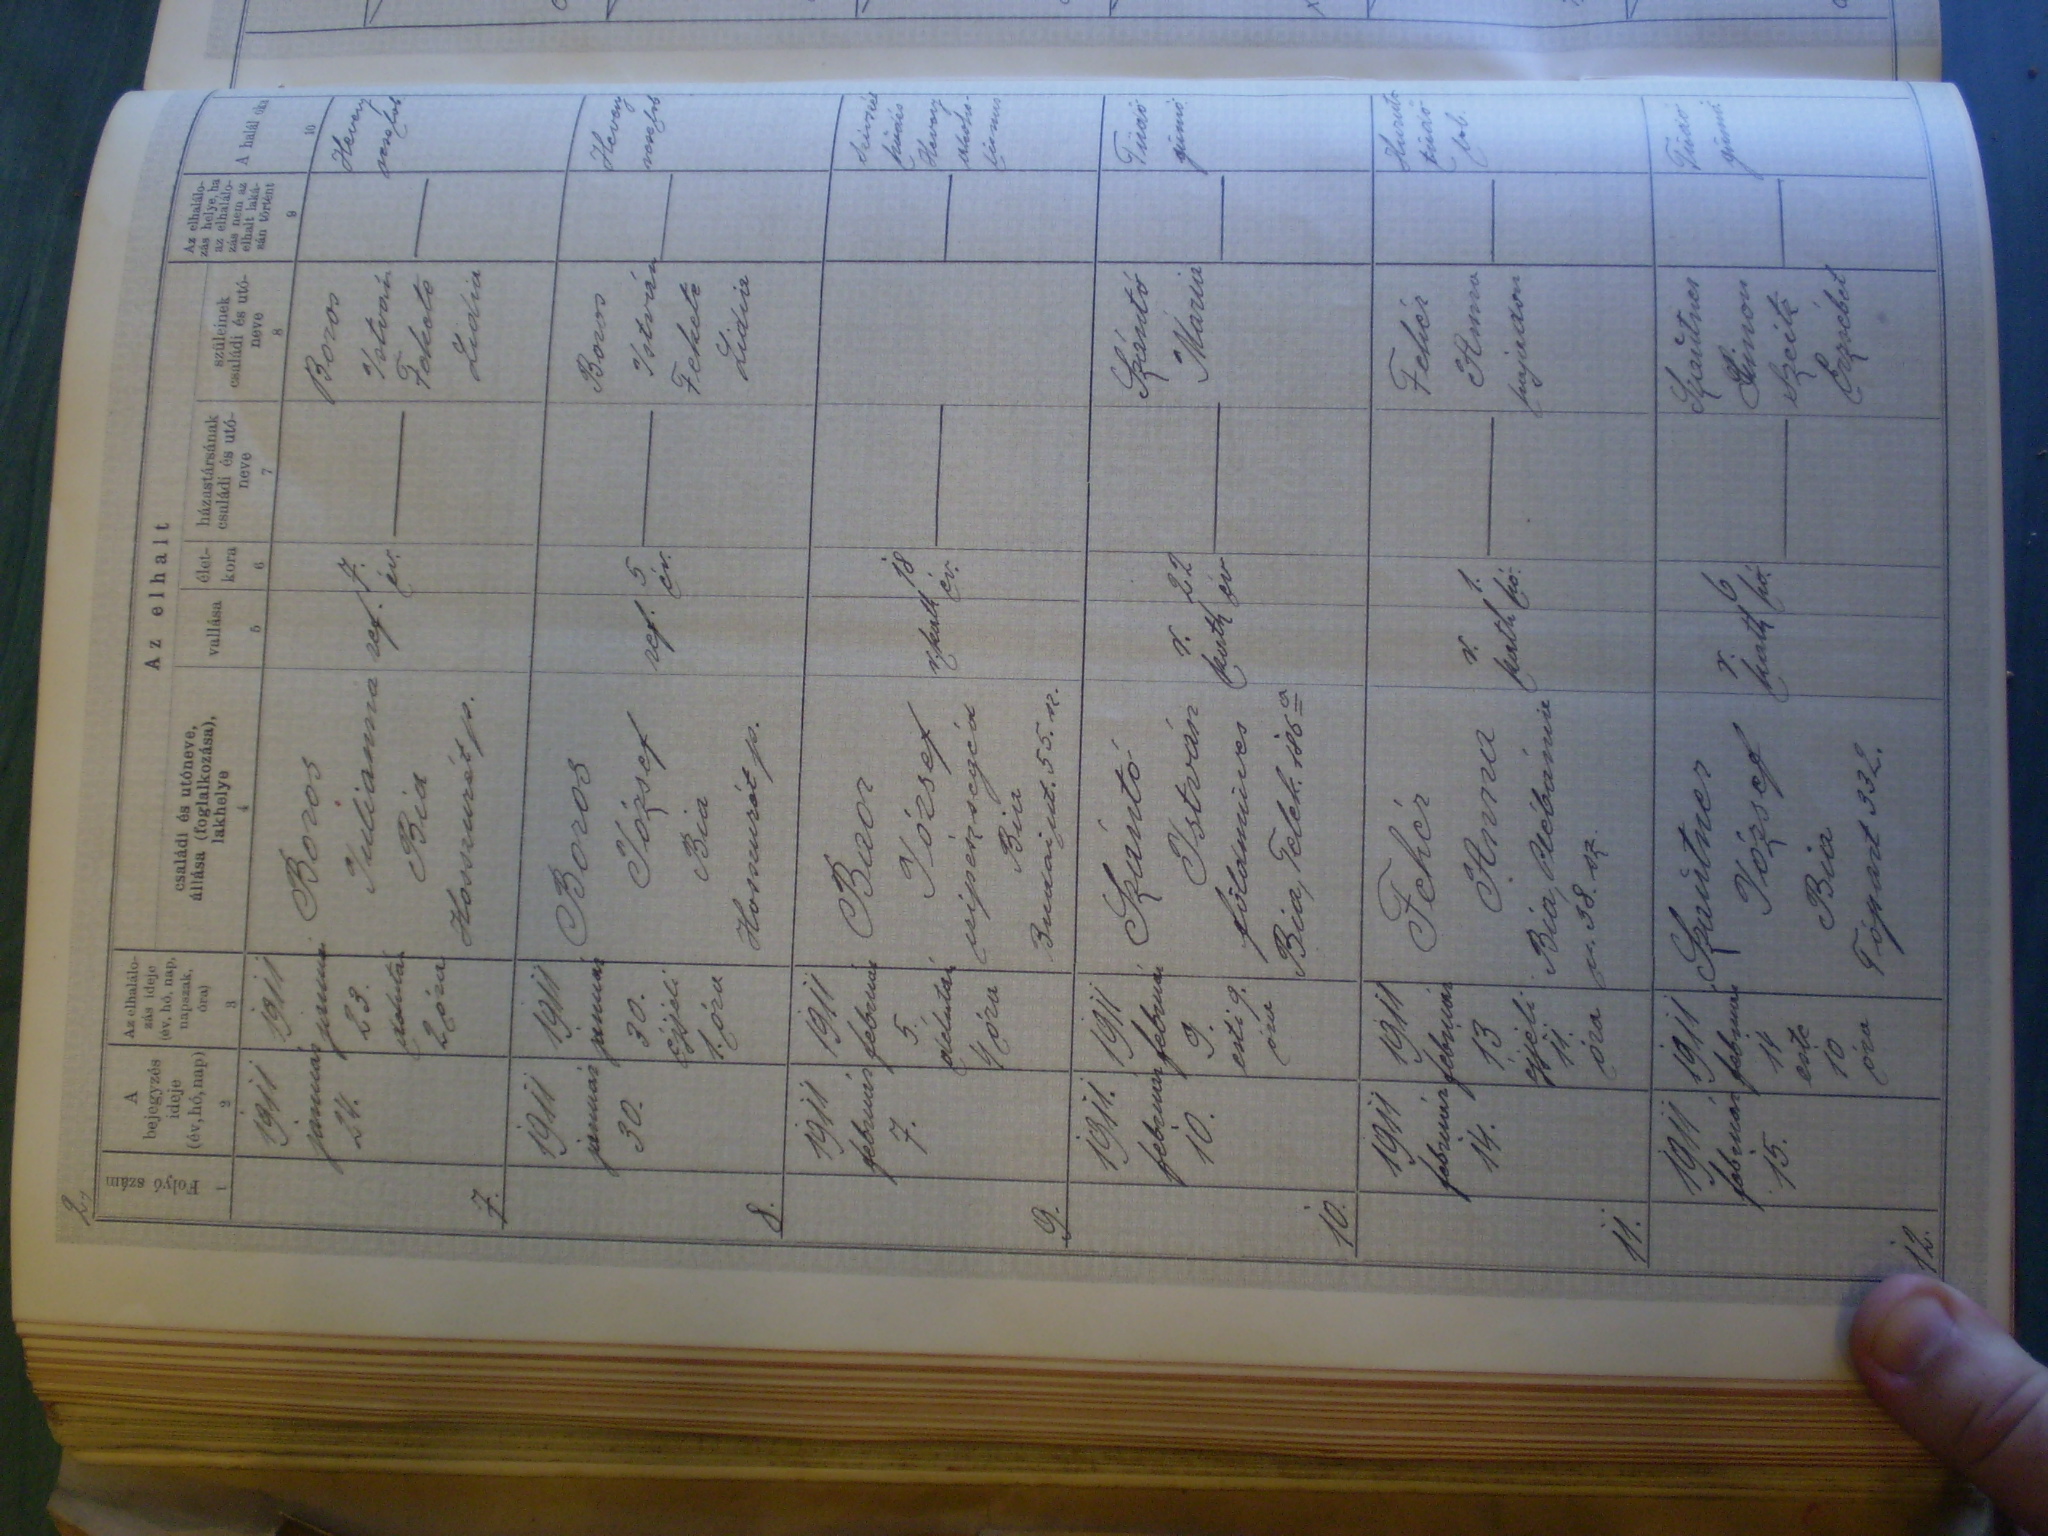 2
Az elhalt
Folyó szám
A
bejegyzés
ideje
(év, hó, nap)
Az elhalálo-
zás ideje
(év, hó, nap,
napszak,
óra)
családi és utóneve,
állása (foglalkozása),
lakhelye
vallása
élet-
kora
házastársának
családi és utó-
neve
szüleinek
családi és utó-
neve
Az elhalálo-
zás helye, ha
az elhalálo-
zás nem az
elhalt laká-
sán történt
A halál oka
1
2
3
4
5
6
7
8
9
10
7.
1911
január
24.
1911
január
23.
délután
2 óra
Boros
Julianna
Bia
Hosszurét p.
ref.
7.
év.
Boros
István
Fekete
Lidia
Heveny
8.
1911
január
30.
1911
január
30.
éjjeli
1. óra
Boros
József
Bia
Hosszurét p.
ref.
5
év.
Boros
István
Fekete
Lidia
Heveny
9.
1911
február
7.
1911
február
5.
délután
4 óra
József
Bia
55. sz.
r. kath
18
év.
Heveny
10.
1911.
február
10.
1911
február
9.
esti 9.
óra
Szántó
István
földmives
Bia, Telek. 186 a
r.
kath
22
év
Szántó
Mária
Tüdő
gümő
11.
1911
február
14.
1911
február
13
éjjeli
11.
óra
Fehér
Anna
Bia, Plébánia
u. 38. sz.
r.
kath
1.
hó.
Fehér
Anna
hajadon
Hurutos
tüdő
lob.
12.
1911
február
15.
1911
február
14
este
10
óra
József
Bia
332.
r.
kath
6
hó.
Simon
Erzsébet
Tüdő
gümő